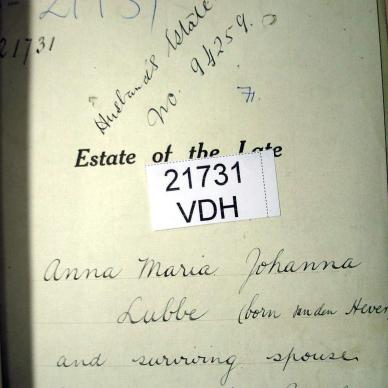 21731
Husband's Estate
No. 94259.
Estate of the Late
21731
VDH
Anna Maria Johanna
Lubbe (born van den Hever
and surviving spouse